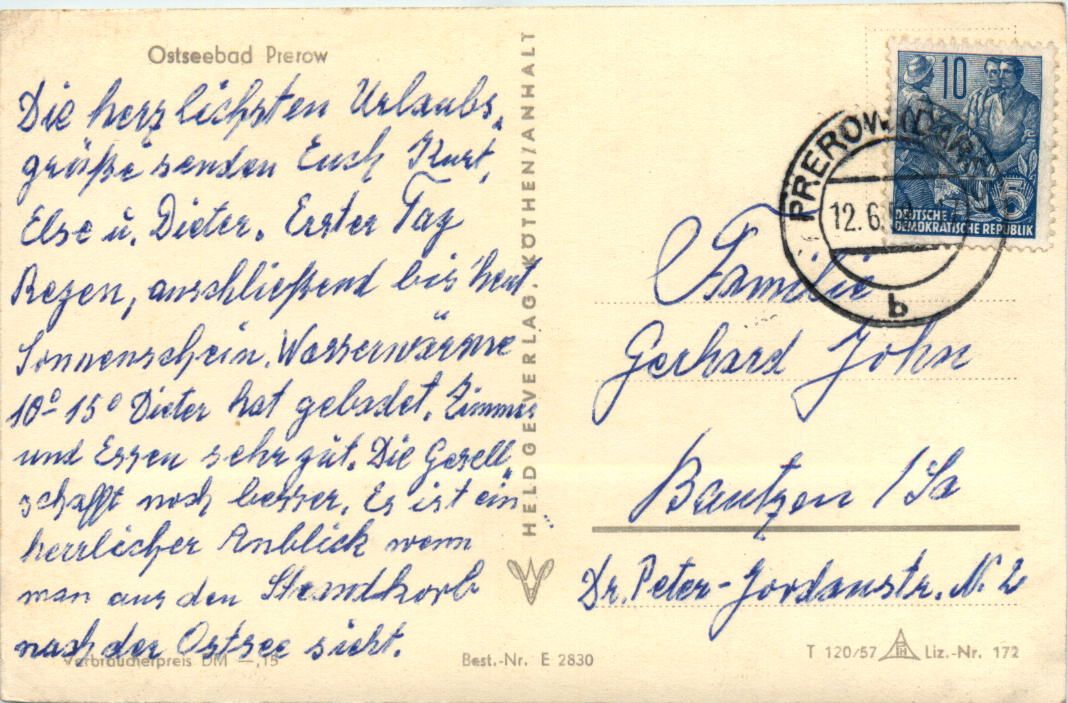 Ostseebad Prerow
Die herzlichsten Urlaubs-
grüße senden Euch Kurt,
Else u. Dieter. Erster Tag
Regen, anschließend bis heut
Sonnenschein. Wasserwärme
10°-15° Dieter hat gebadet. Zimmer
und Essen sehr gut. Die Gesell-
schafft noch besser. Es ist ein
herrlicher Anblick wenn
man aus den Strandkorb
nach der Ostsee sieht.
Verbraucherpreis DM —,15
Best.-Nr. E 2830
HELDGE-VERLAG, KÖTHEN/ANHALT
10
5
DEUTSCHE
DEMOKRATISCHE REPUBLIK
PREROW
12.6.
b
Familie
Gerhard John
Bautzen / Sa
Dr. Peter-Jordanstr. N. 2
T 120/57
Liz.-Nr. 172